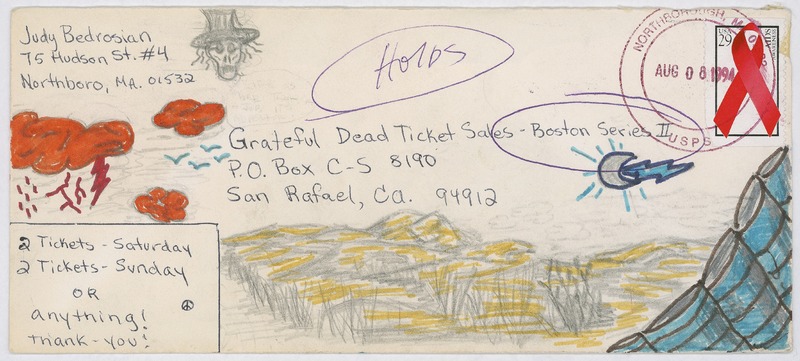 Judy Bedrosian
75 Hudson St. #4
Northboro, MA. 01532
Holds
NORTHBOROUGH, M
AUG 08 1994
USPS
USA
29
AIDS
Grateful Dead Ticket Sales - Boston Series II
P.O. Box C-S 8190
San Rafael, Ca. 94912
2 Tickets - Saturday
2 Tickets - Sunday
OR
anything!
thank-you!